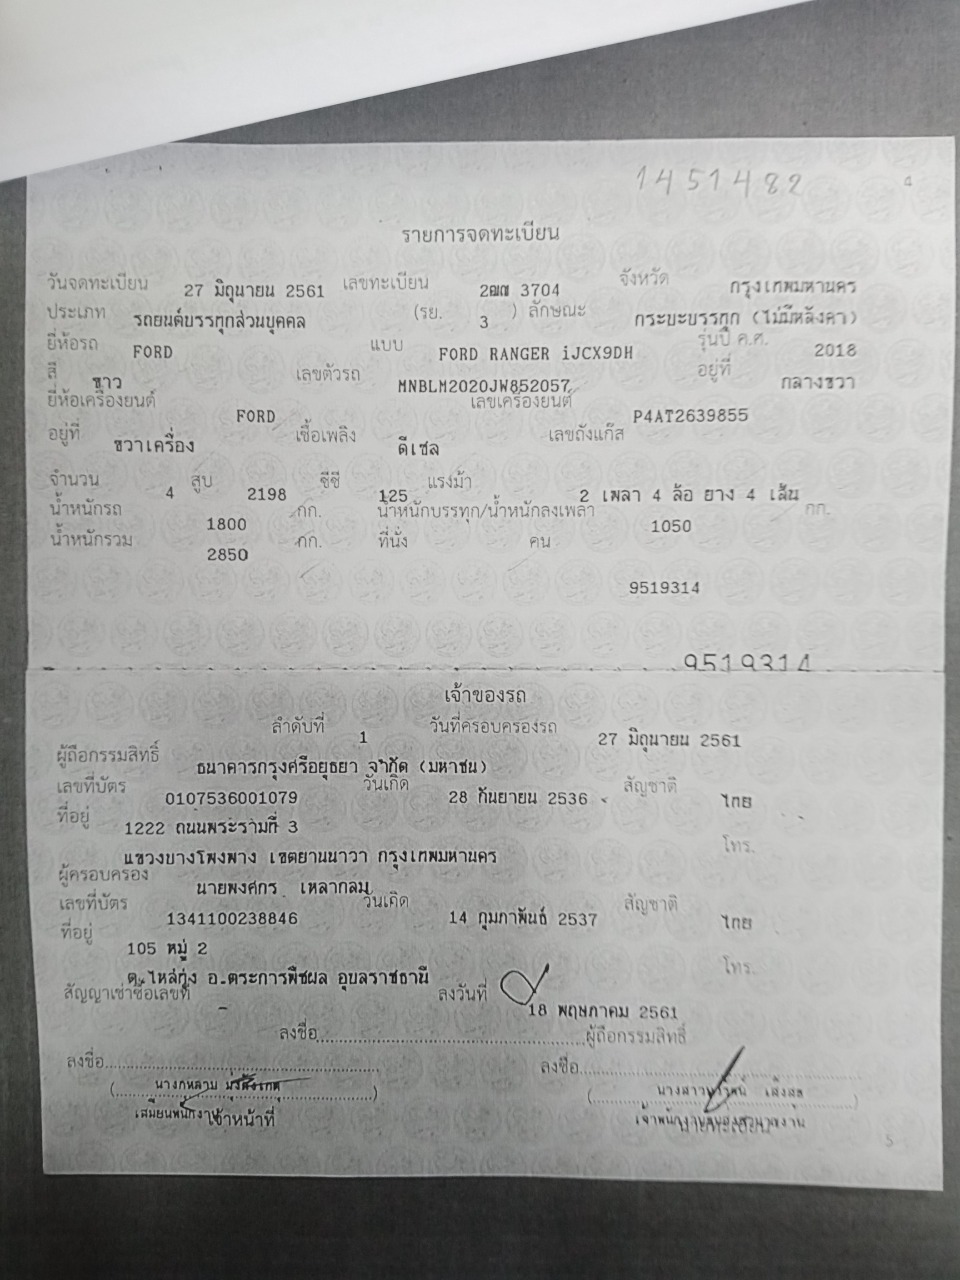 1451482
4
รายการจดทะเบียน
วันจดทะเบียน 27 มิถุนายน 2561 เลขทะเบียน 2ฒฌ 3704 จังหวัด กรุงเทพมหานคร
ประเภท รถยนต์บรรทุกส่วนบุคคล (รย. 3 ) ลักษณะ กระบะบรรทุก (ไม่มีหลังคา)
ยี่ห้อรถ FORD แบบ FORD RANGER iJCX9DH รุ่นปี ค.ศ. 2018
สี ขาว เลขตัวรถ MNBLM2020JW852057 อยู่ที่ กลางขวา
ยี่ห้อเครื่องยนต์ FORD เลขเครื่องยนต์ P4AT2639855
อยู่ที่ ขวาเครื่อง เชื้อเพลิง ดีเซล เลขถังแก๊ส
จำนวน 4 สูบ 2198 ซีซี 125 แรงม้า 2 เพลา 4 ล้อ ยาง 4 เส้น
น้ำหนักรถ 1800 กก. น้ำหนักบรรทุก/น้ำหนักลงเพลา 1050 กก.
น้ำหนักรวม 2850 กก. ที่นั่ง คน
9519314
9519314
เจ้าของรถ
ลำดับที่ 1 วันที่ครอบครองรถ 27 มิถุนายน 2561
ผู้ถือกรรมสิทธิ์ ธนาคารกรุงศรีอยุธยา จำกัด (มหาชน)
เลขที่บัตร 0107536001079 วันเกิด 28 กันยายน 2536 สัญชาติ ไทย
ที่อยู่ 1222 ถนนพระรามที่ 3 โทร.
แขวงบางโพงพาง เขตยานนาวา กรุงเทพมหานคร
ผู้ครอบครอง นายพงศกร เหลากลม
เลขที่บัตร 1341100238846 วันเกิด 14 กุมภาพันธ์ 2537 สัญชาติ ไทย
ที่อยู่ 105 หมู่ 2 โทร.
ต.ไหล่ทุ่ง อ.ตระการพืชผล อุบลราชธานี
สัญญาเช่าซื้อเลขที่ - ลงวันที่ 18 พฤษภาคม 2561
ลงชื่อ ผู้ถือกรรมสิทธิ์
ลงชื่อ ลงชื่อ
( นางกุหลาบ ) ( นางสาว )
เสมียนพนักงาน เจ้าหน้าที่ นายทะเบียน
5